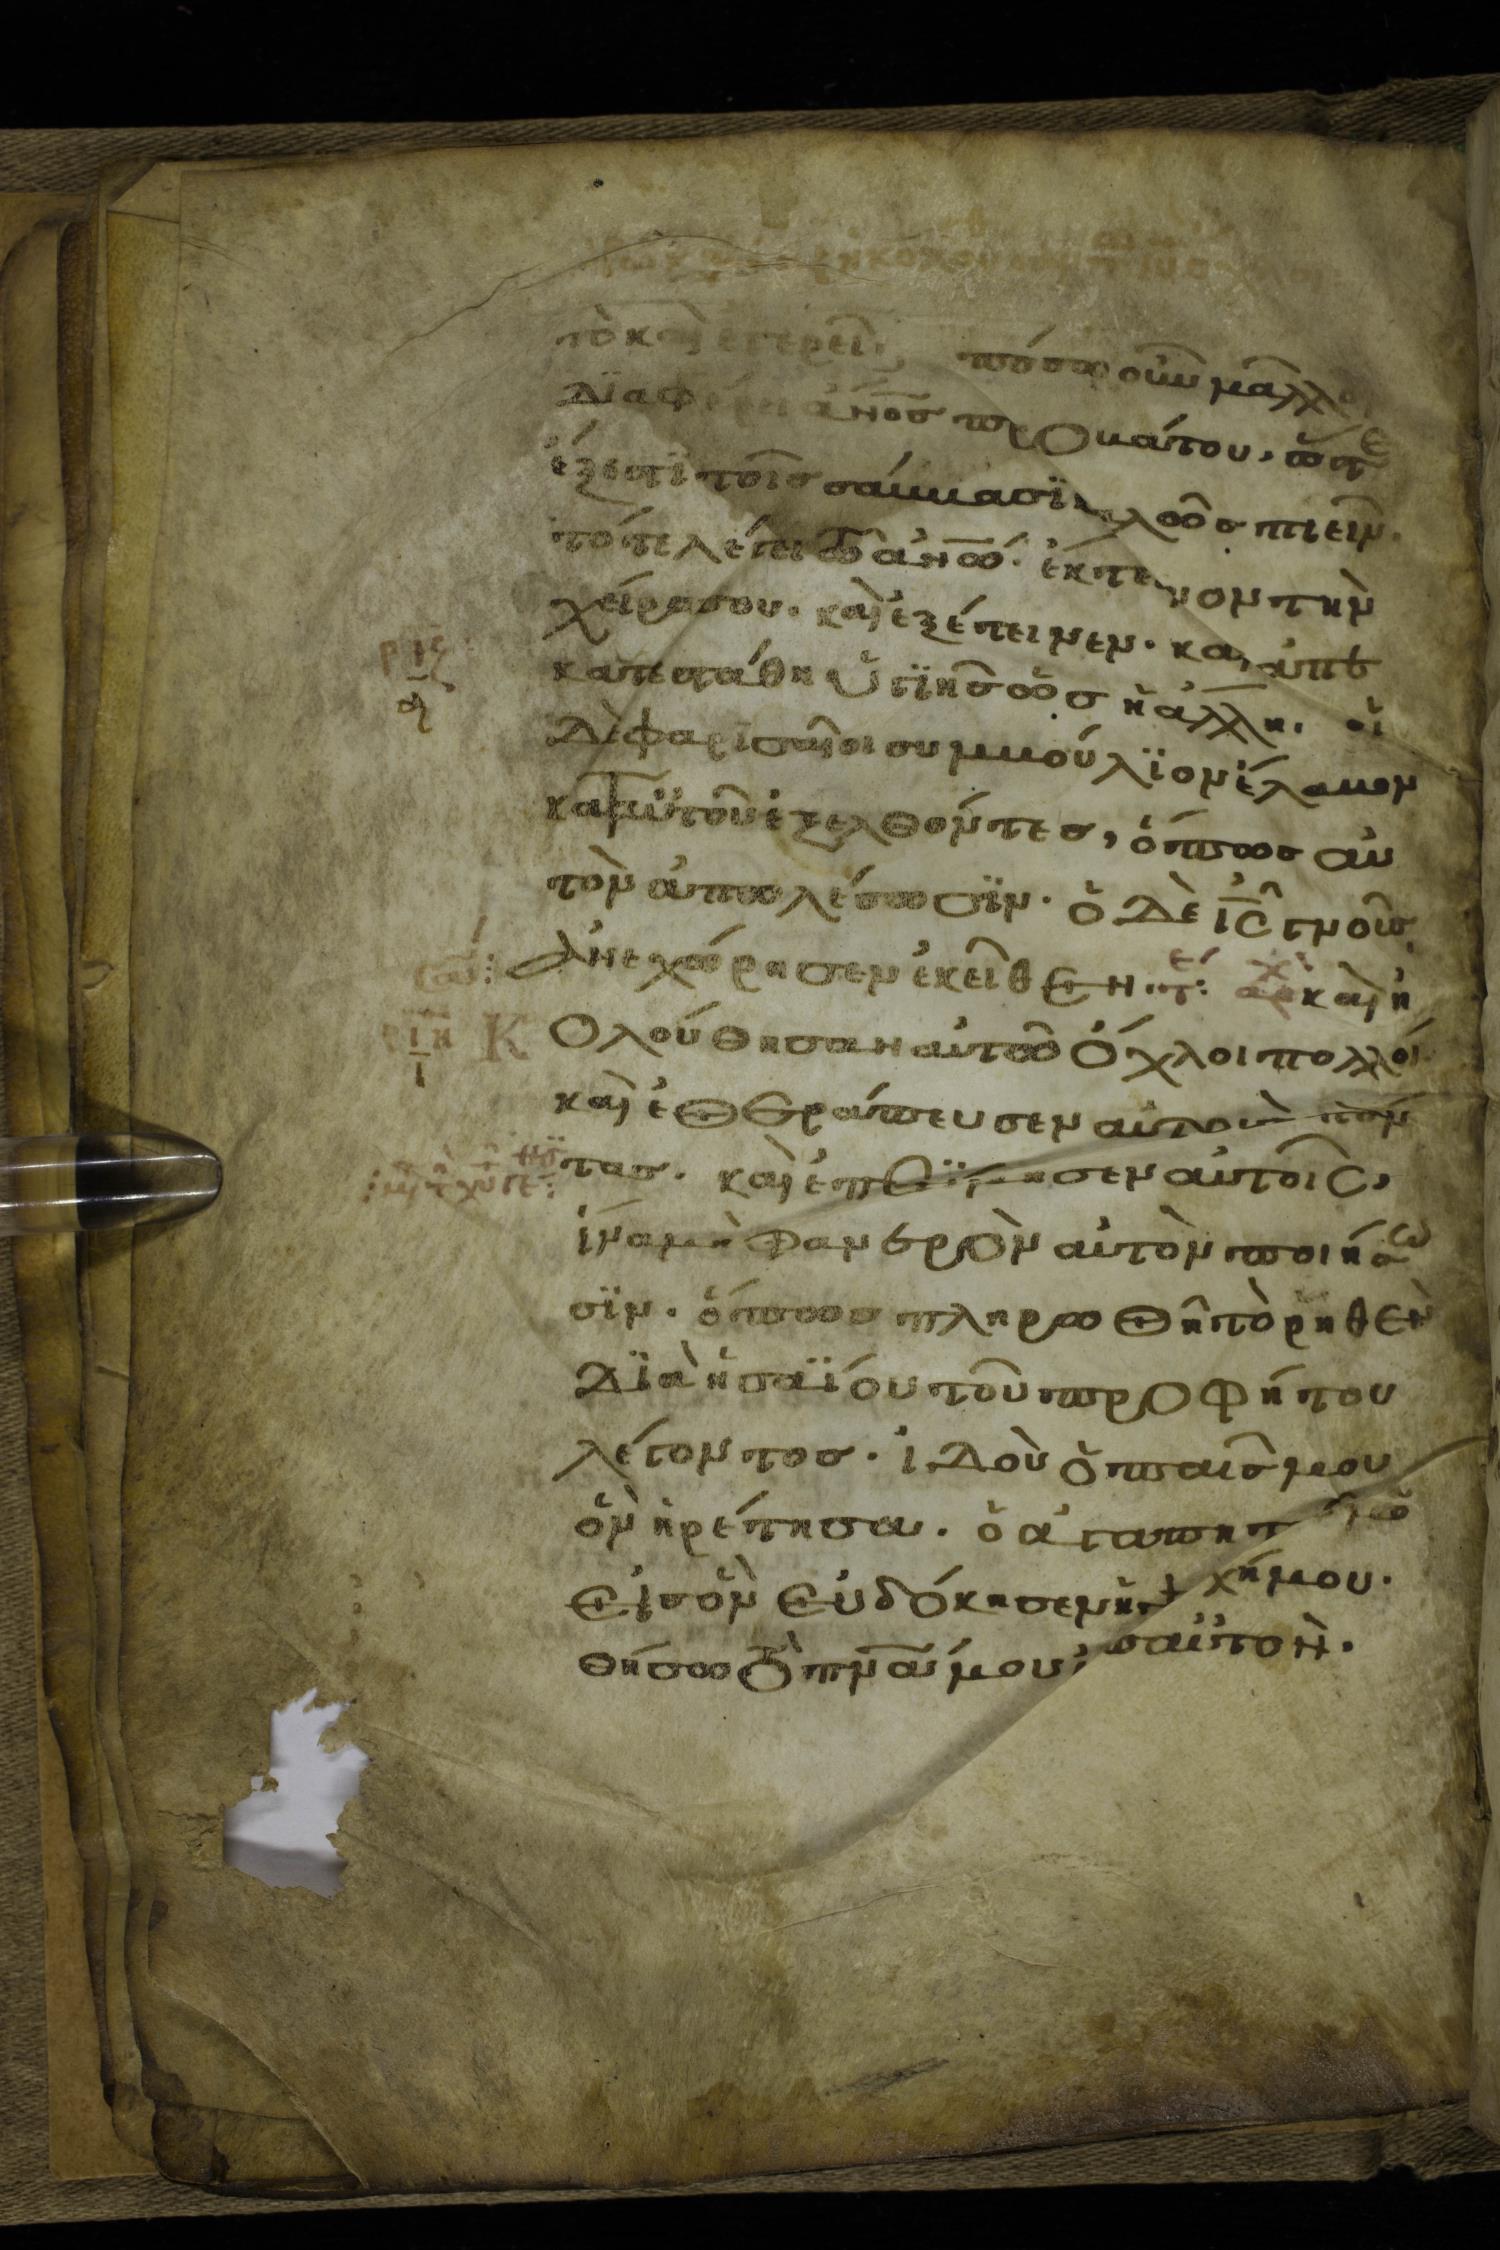 τὸ καὶ ἐγερεῖ· πόσω οὖν μᾶλλο
διαφέρει ἄνος προβάτου· ὥστε
ἔξεστι τοῖς σάββασϊ καλῶς ποιεῖν·
τότε λέγει τῶ ἀνῶ· ἔκτεινον τὴν
χεῖρα σου· καὶ ἐξέτεινεν· καὶ ἀπε
ριζ
δ
κατεστάθη ὑγϊὴς ὡς ἡ ἄλλη· οἱ
δὲ φαρισαῖοι συμβούλϊον ἔλαβον
κατ αὐτοῦ ἐξελθόντες, ὅπως αὐ
τὸν ἀπολέσωσϊν· ὁ δὲ ις γνοὺς
ἀνεχώρησεν ἐκεῖθεν· τε αρχ καὶ ἠ
ριη
ι
Κ
ολούθησαν αὐτῶ ὄχλοι πολλοί
καὶ ἐθεράπευσεν αὐτοὺς πάν
τας· καὶ ἐπετίμησεν αὐτοῖς,
ἵνα μὴ φανερὸν αὐτὸν ποιήσω
σϊν· ὅπως πληρωθῆ τὸ ῥηθὲν
δϊὰ ἡσαΐου τοῦ προφήτου
λέγοντος· ἰδοὺ ὁ παῖς μου
ὃν ἡρέτησα· ὁ ἀγαπητ
εἰς ὃν εὐδόκησεν ἡ ψυχή μου·
θήσω τὸ πνα μου ἐπ αὐτὸν·